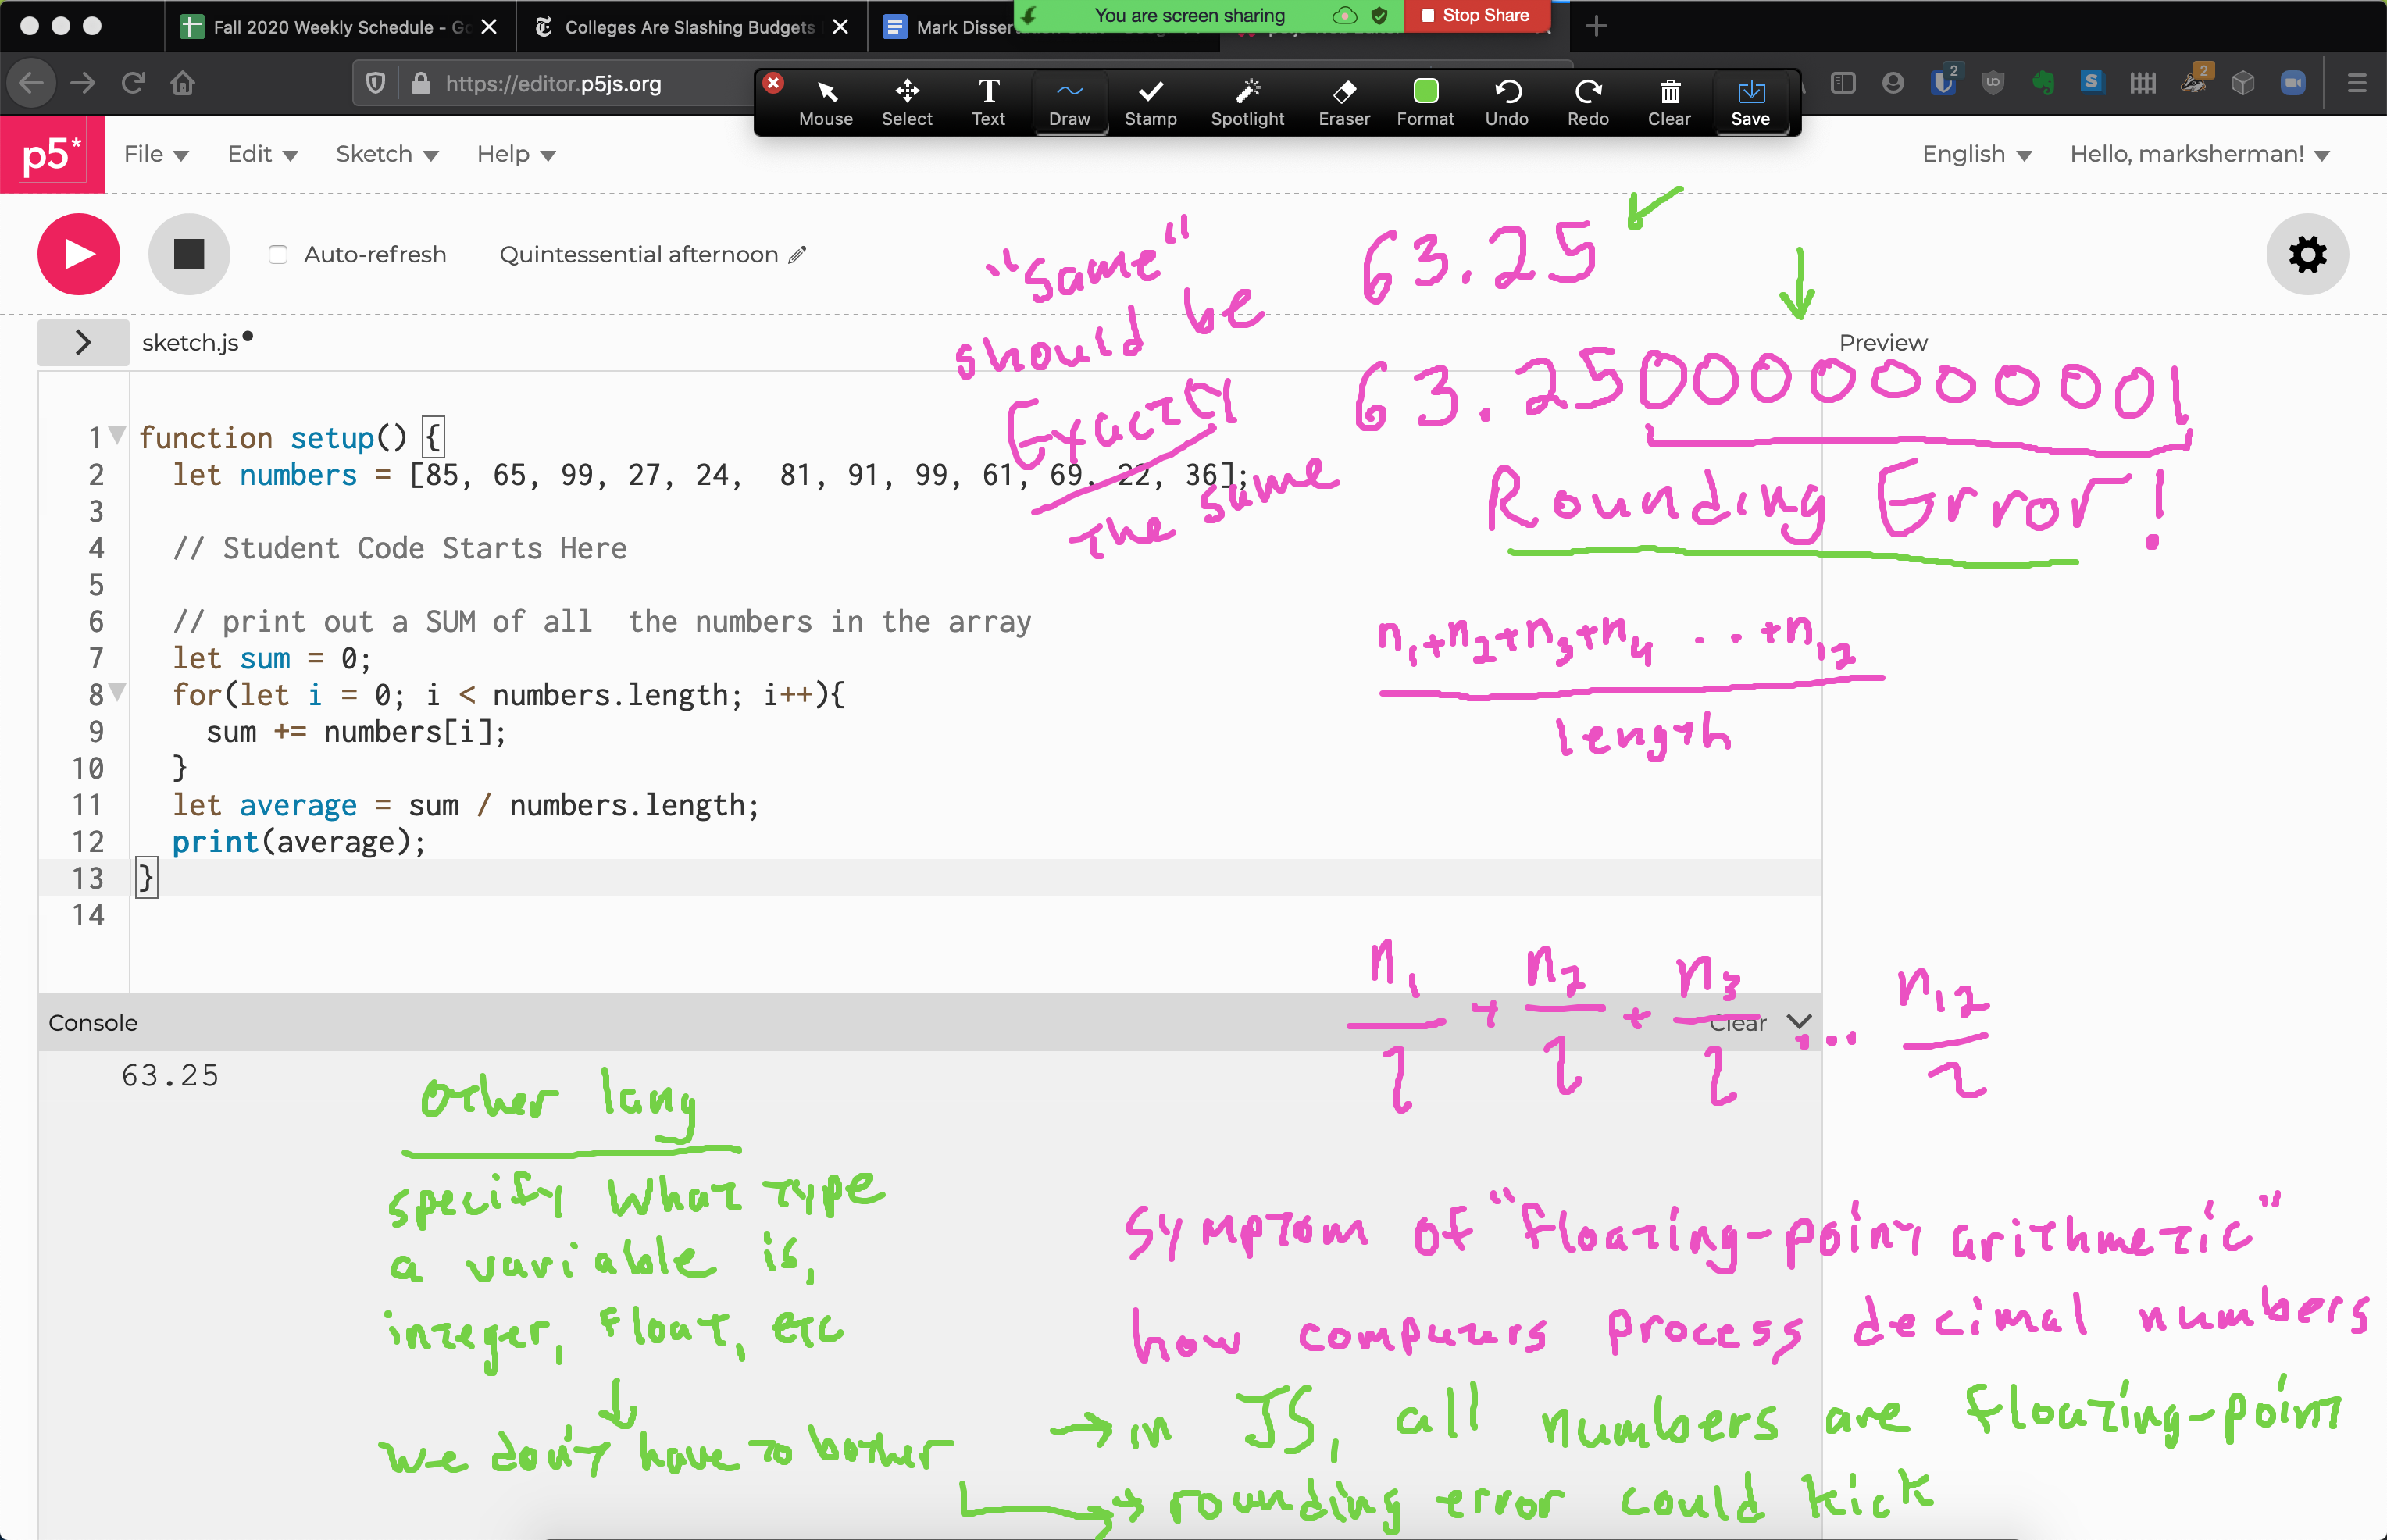 Fall 2020 Weekly Schedule - Go
Colleges Are Slashing Budgets
Mark Disser
You are screen sharing
Stop Share
https://editor.p5js.org
Mouse Select Text Draw Stamp Spotlight Eraser Format Undo Redo Clear Save
2
2
p5*
File Edit Sketch Help
English Hello, marksherman!
Auto-refresh Quintessential afternoon
"Same"
should be
Exactly
the same
63.25
63.250000000001
Rounding Error!
sketch.js
Preview
1 function setup() {
2 let numbers = [85, 65, 99, 27, 24,  81, 91, 99, 61, 69, 22, 36];
3
4 // Student Code Starts Here
5
6 // print out a SUM of all  the numbers in the array
7 let sum = 0;
8 for(let i = 0; i < numbers.length; i++){
9 sum += numbers[i];
10 }
11 let average = sum / numbers.length;
12 print(average);
13 }
14
n1+n2+n3+n4 ...+n12
length
n1 + n2 + n3 ... n12
2 2 2 2
Console
Clear
63.25
other lang
specify what type
a variable is,
integer, float, etc
we don't have to bother
symptom of "floating-point arithmetic"
how computers process decimal numbers
→ in JS, all numbers are floating-point
→ rounding error could kick